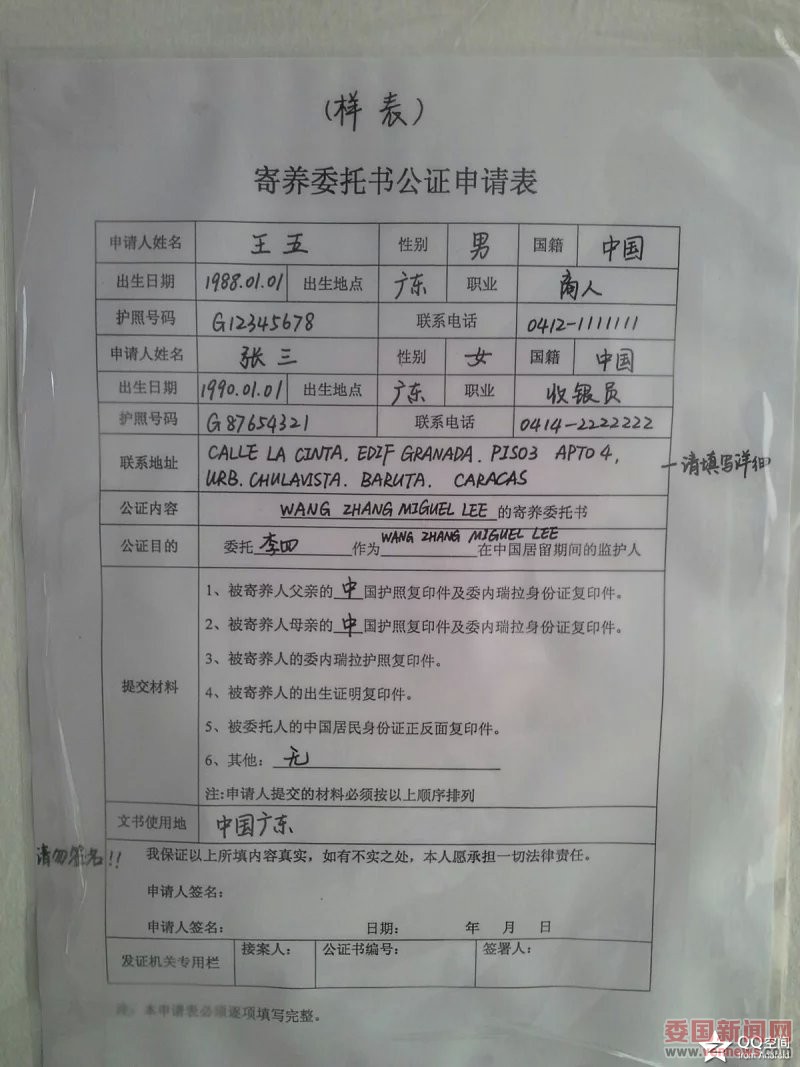 （样表）
寄养委托书公证申请表
申请人姓名 王五 性别 男 国籍 中国
出生日期 1988.01.01 出生地点 广东 职业 商人
护照号码 G12345678 联系电话 0412-1111111
申请人姓名 张三 性别 女 国籍 中国
出生日期 1990.01.01 出生地点 广东 职业 收银员
护照号码 G87654321 联系电话 0414-2222222
联系地址 CALLE LA CINTA. EDIF GRANADA. PISO3 APTO 4,
URB. CHULAVISTA. BARUTA. CARACAS
一请填写详细
公证内容 WANG ZHANG MIGUEL LEE 的寄养委托书
公证目的 委托李四作为WANG ZHANG MIGUEL LEE在中国居留期间的监护人
提交材料
1、被寄养人父亲的中国护照复印件及委内瑞拉身份证复印件。
2、被寄养人母亲的中国护照复印件及委内瑞拉身份证复印件。
3、被寄养人的委内瑞拉护照复印件。
4、被寄养人的出生证明复印件。
5、被委托人的中国居民身份证正反面复印件。
6、其他：无
注:申请人提交的材料必须按以上顺序排列
文书使用地 中国广东
请勿签名!!
我保证以上所填内容真实，如有不实之处，本人愿承担一切法律责任。
申请人签名：
申请人签名： 日期： 年 月 日
发证机关专用栏 接案人： 公证书编号： 签署人：
注：本申请表必须逐项填写完整。
委国新闻网
QQ空间